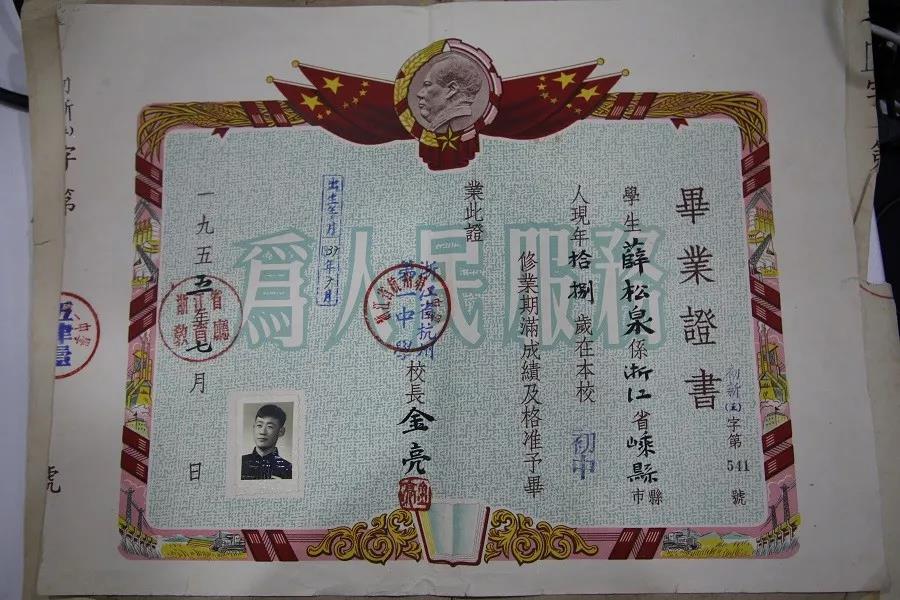 畢業證書
初新(五)字第541號
學生薛松泉係浙江省嵊縣縣市
人現年拾捌歲在本校初中
修業期滿成績及格准予畢
業此證
浙江省杭州
第一中學校長金亮
出生年月
一九五五年七月 日
為人民服務
字第
號